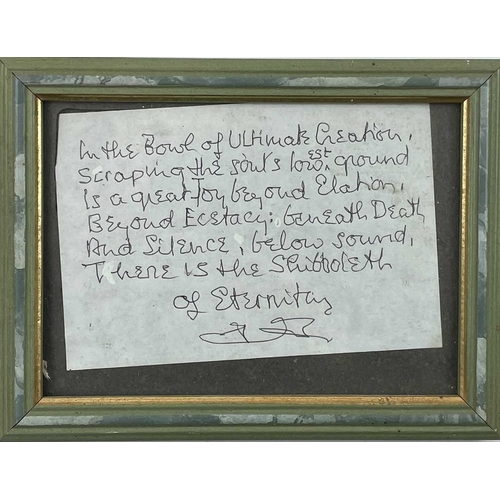 In the Bowl of Ultimate Creation,
Scraping the soul's lowest ground
Is a great Joy beyond Elation,
Beyond Ecstacy; beneath Death
And Silence, below sound,
There is the Shibboleth
of Eternitay